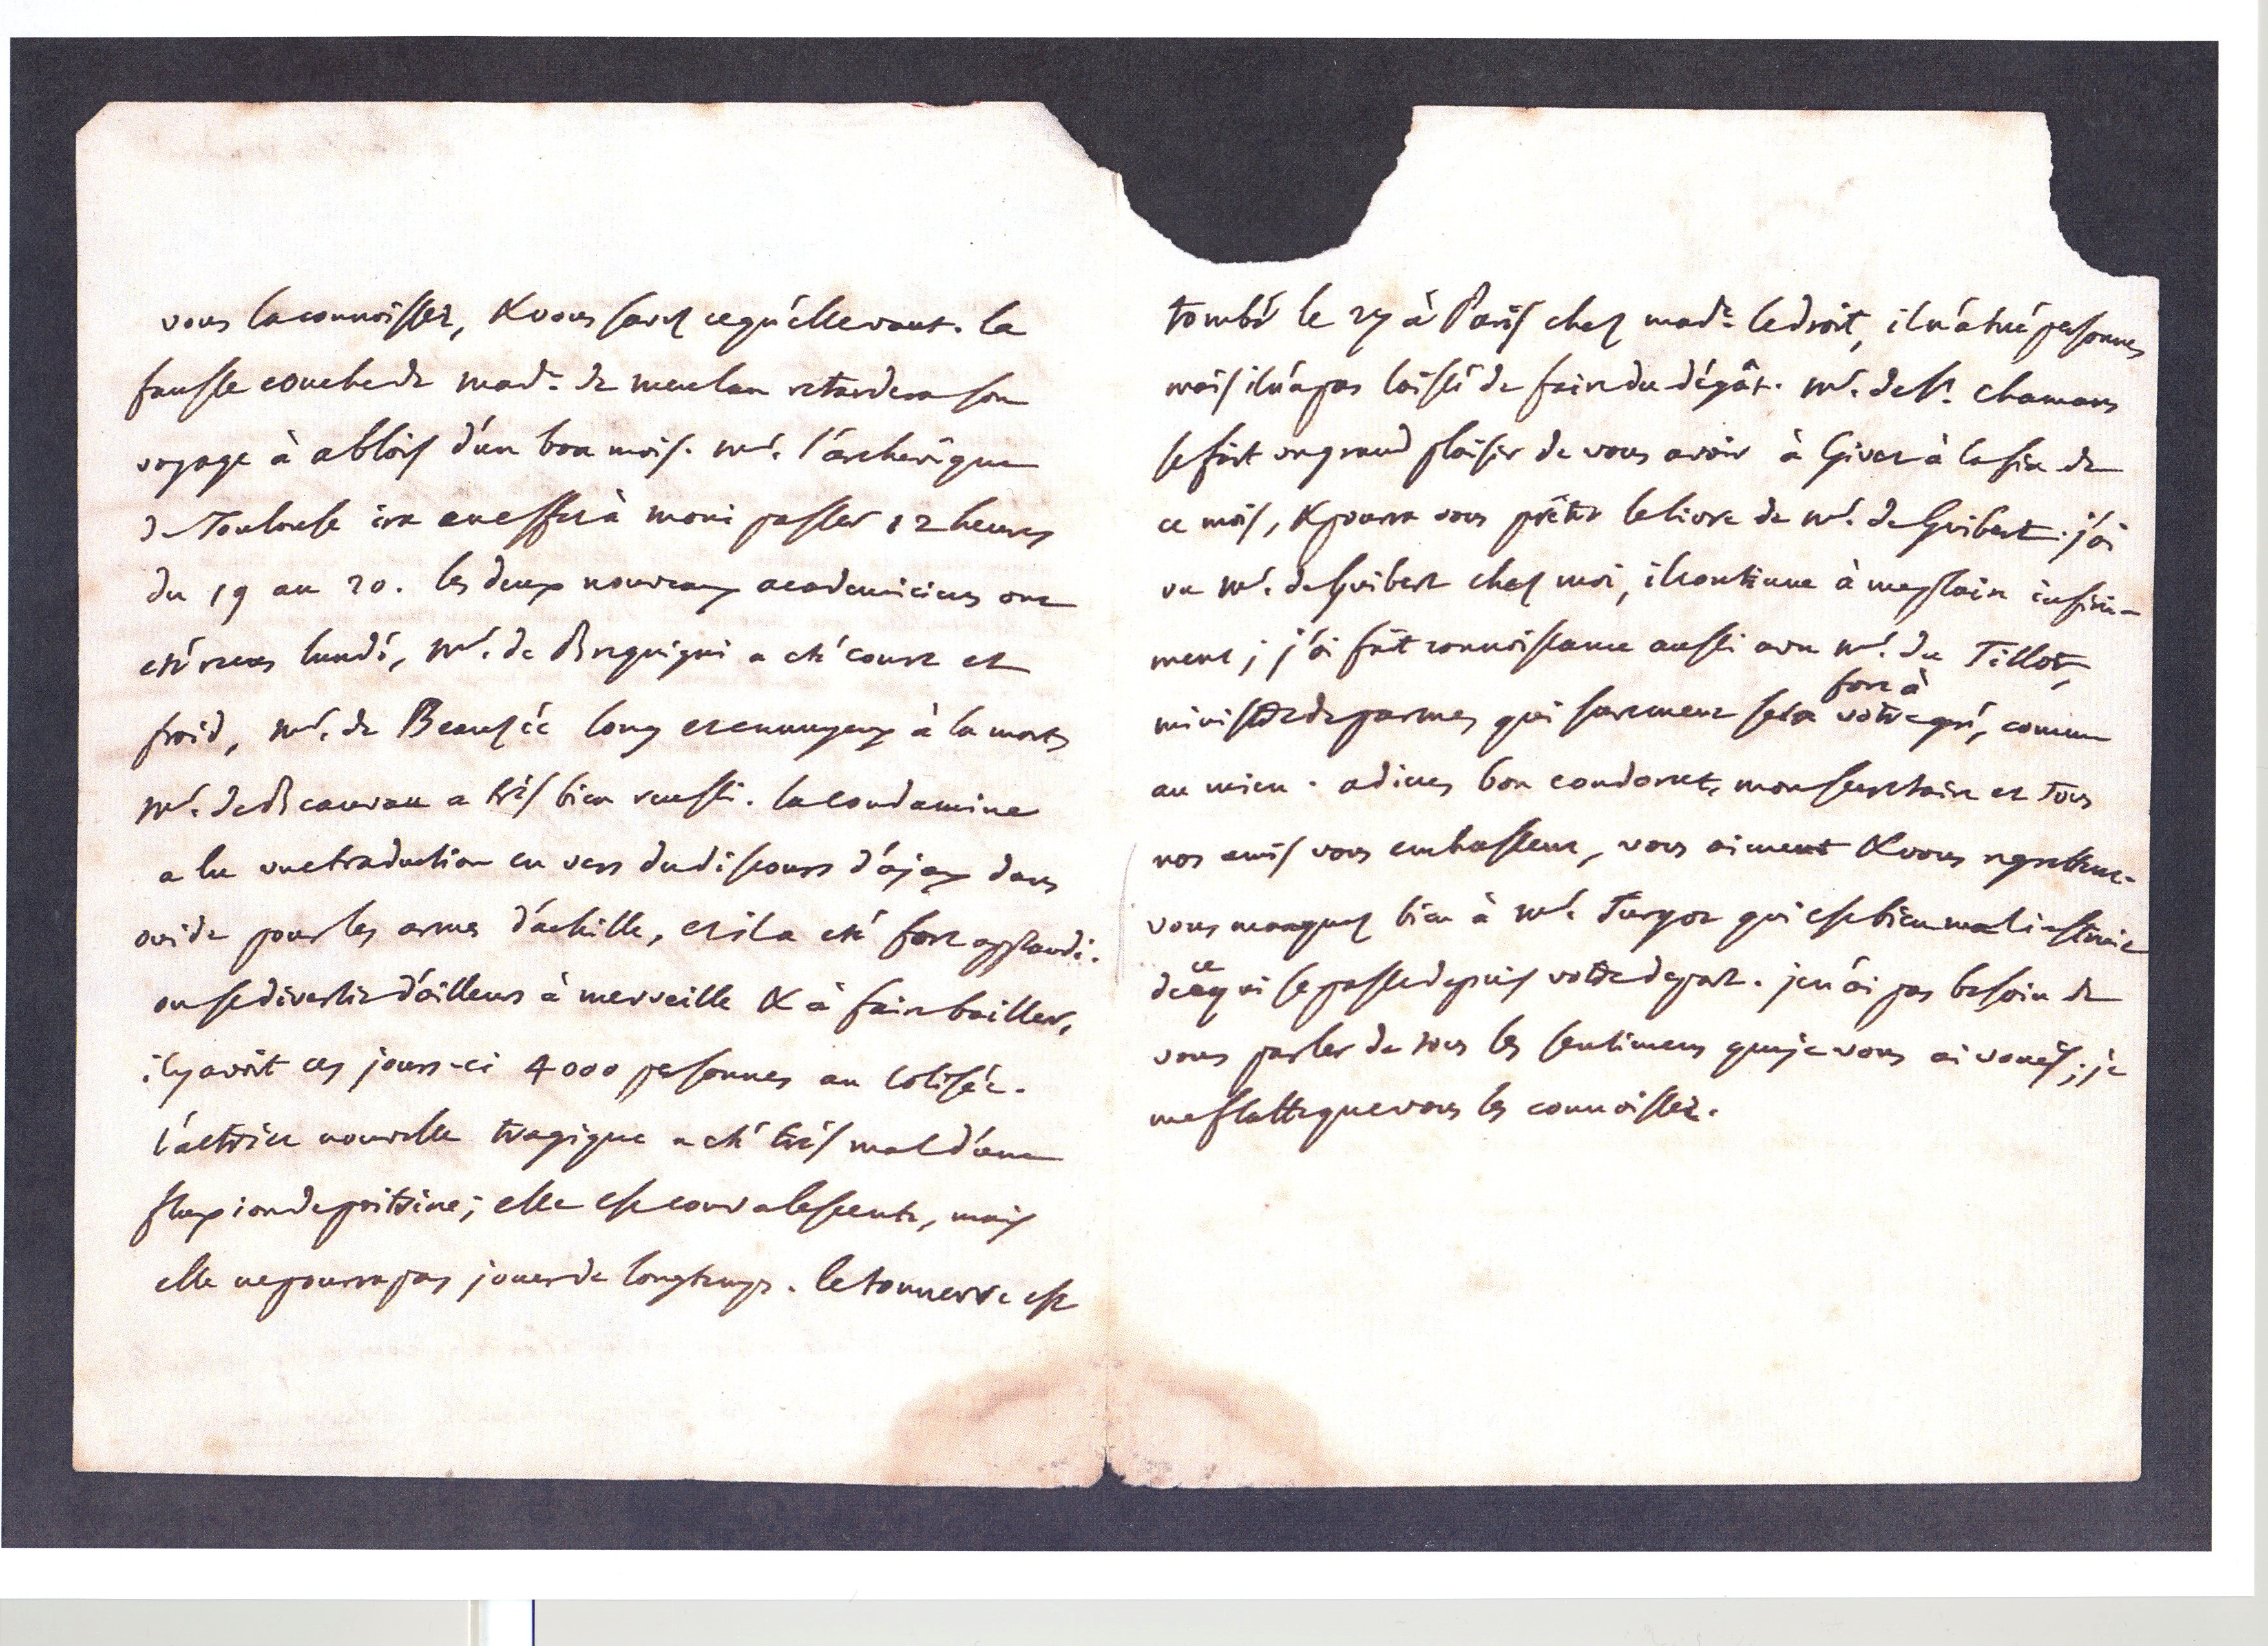 vous la connoissez, & vous savez ce qu'elle vaut. la
fausse couche de mad.e de meulan retardera son
voyage à ablois d'un bon mois. mr. l'archevêque
de Toulouse ira en effet à moni passer 12 heures
du 19 au 20. les deux nouveaux academiciens ont
été recus lundi, mr. de Brequigni a été court et
froid, mr. de Beauzée long et ennuyeux à la mort,
mr. de Beauvau a très bien reussi. la condamine
a lu une traduction en vers du discours d'ajax dans
ovide pour les armes d'achille, et il a été fort applaudi.
on se divertit d'ailleurs à merveille & à faire bailler,
il y avoit ces jours-ci 4000 personnes au Colisée.
l'actrice nouvelle tragique a été très mal d'une
fluxion de poitrine; elle est convalescente, mais
elle ne pourra pas jouer de longtemps. le tonnerre est
tombé le 27 à Paris chez mad.e ledroit, il n'a tué personnes
mais il n'a pas laissé de faire du dégât. mr. de St. chamans
se fait un grand plaisir de vous avoir à Givet à la fin de
ce mois, & pourra vous prêter le livre de mr. de Guibert. j'ai
vu mr. de Guibert chez moi, il continue à me plaire infini-
ment; j'ai fait connoissance aussi avec mr. du Tillot,
ministre de parme, qui surement sera fort à votre gré, comme
au mien. adieu, bon condorcet, mon secretaire et tous
nos amis vous embrassent, vous aiment & vous regrettent.
vous manquez bien à mr. Turgot qui est bien mal instruit
de ce qui se passe depuis votre depart. je n'ai pas besoin de
vous parler de tous les sentimens que je vous ai voués; je
me flatte que vous les connoissez.